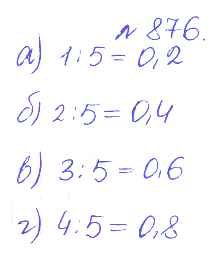 № 876.
а) 1:5 = 0,2
б) 2:5 = 0,4
в) 3:5 = 0,6
г) 4:5 = 0,8